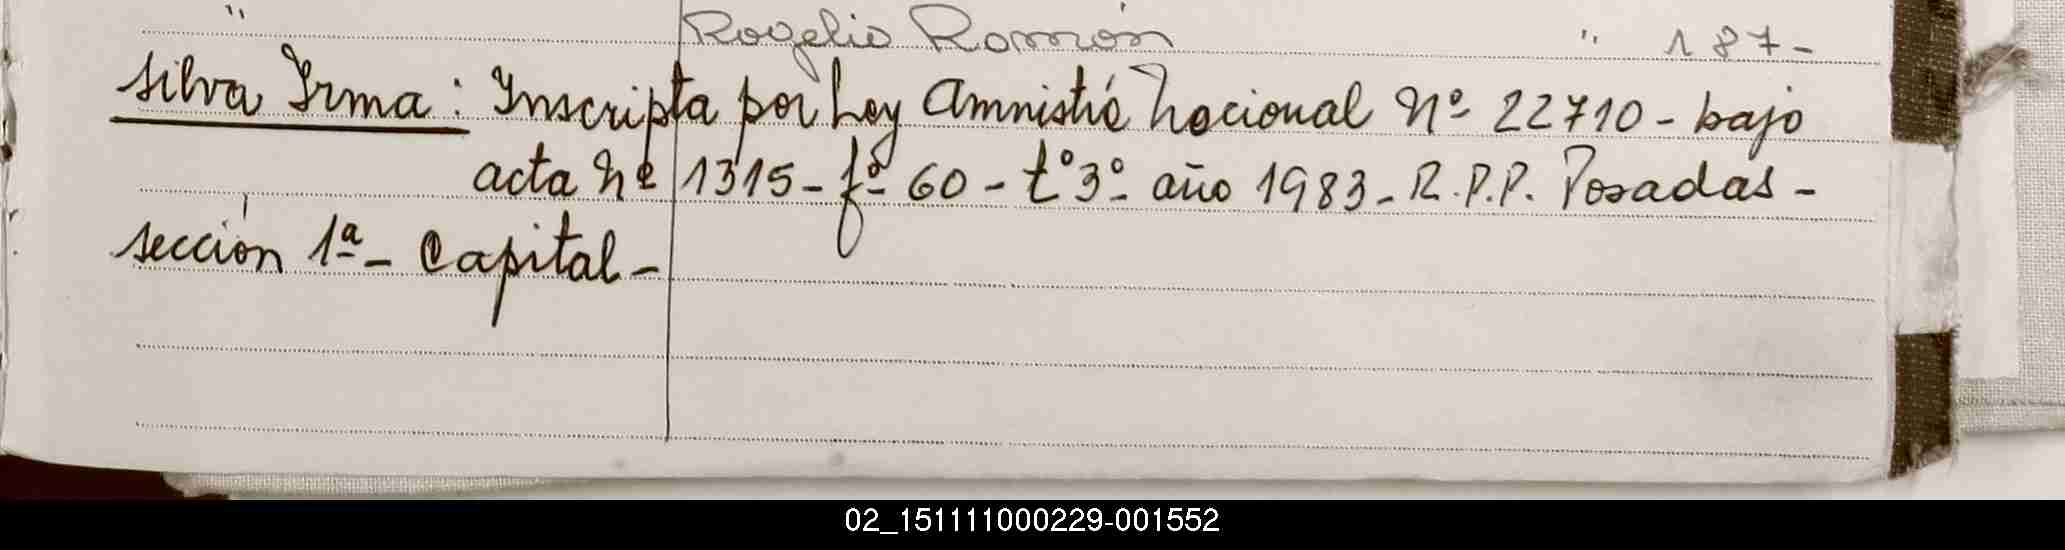 " Rogelio Ramón " 187-
Silva Irma: Inscripta por Ley Amnistía Nacional Nº 22710 - bajo
acta Nº 1315 - fº 60 - tº 3º año 1983 - R.P.P. Posadas -
sección 1ª - Capital -
02_151111000229-001552